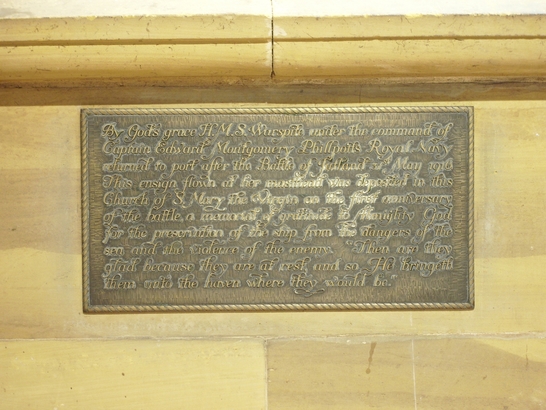 By God's grace H.M.S. Warspite under the command of
Captain Edward Montgomery Phillpotts Royal Navy
returned to port after the Battle of Jutland 31 May 1916
This ensign flown at her masthead was deposited in this
Church of S. Mary The Virgin on the first anniversary
of the battle, a memorial of gratitude to Almighty God
for the preservation of the ship from the dangers of the
sea and the violence of the enemy. "Then are they
glad because they are at rest, and so He bringeth
them unto the haven where they would be."